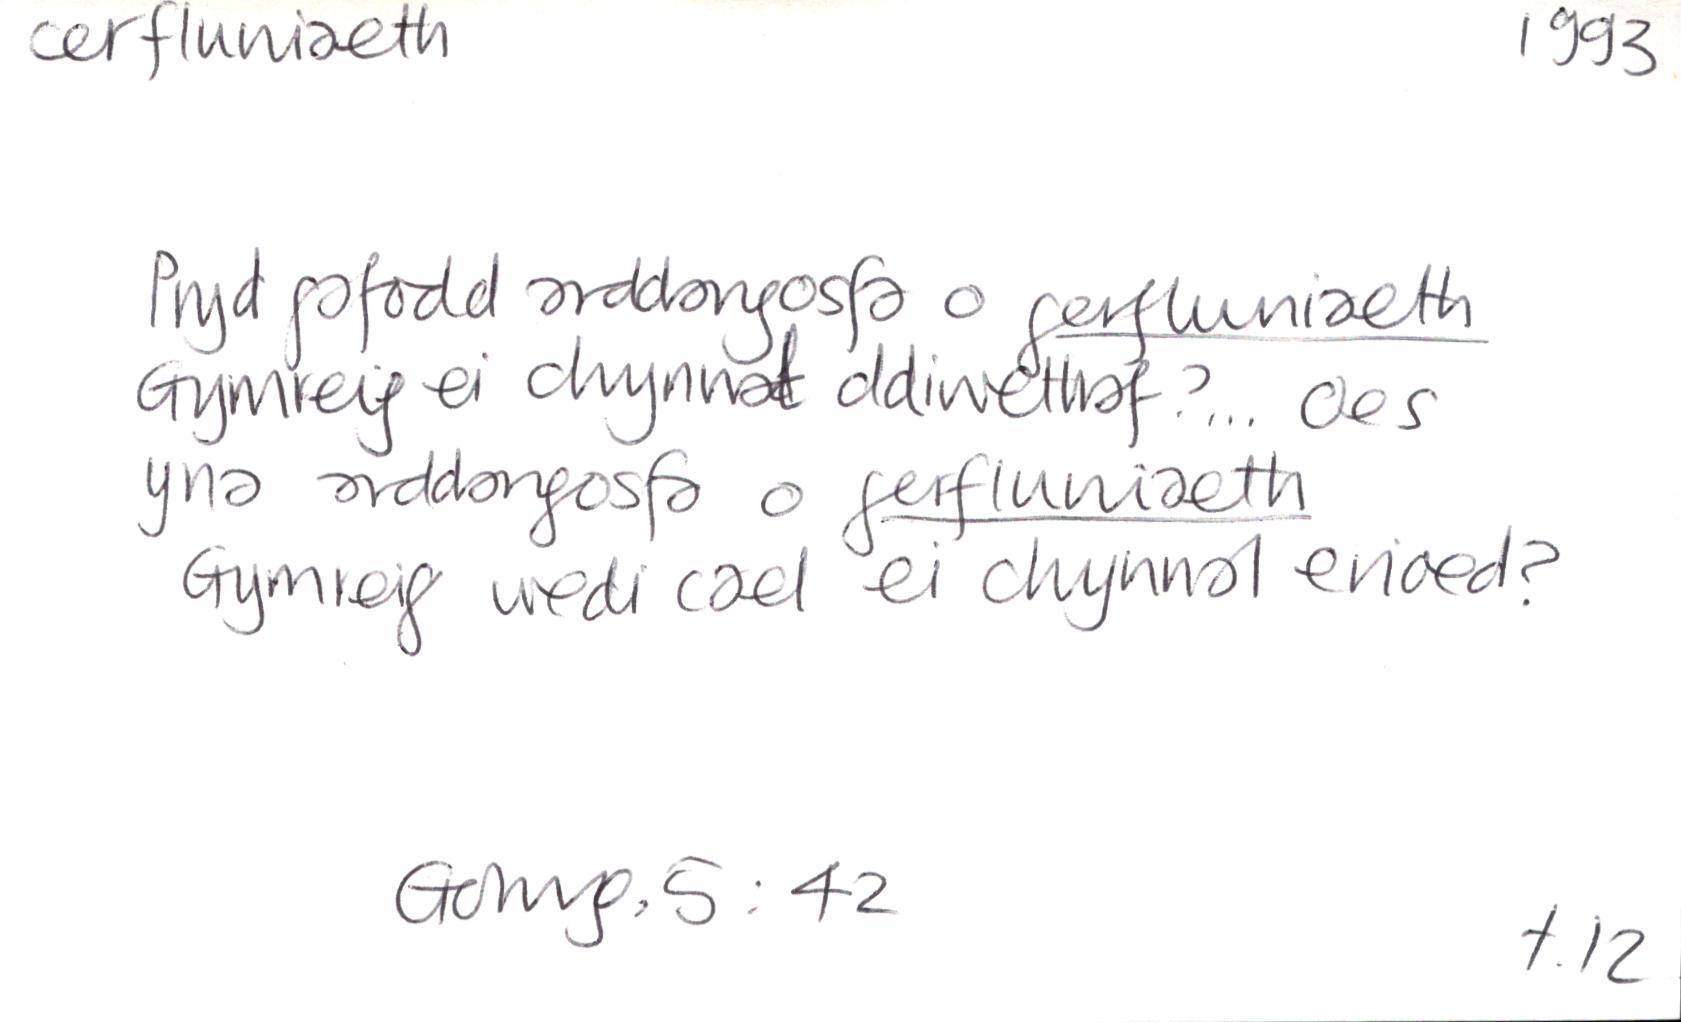 cerfluniaeth
1993
Pryd gafodd arddangosfa o gerfluniaeth
Gymreig ei chynnal ddiwethaf?... Oes
yna arddangosfa o gerfluniaeth
Gymreig wedi cael ei chynnal erioed?
Golwg, 5: 42
t.12